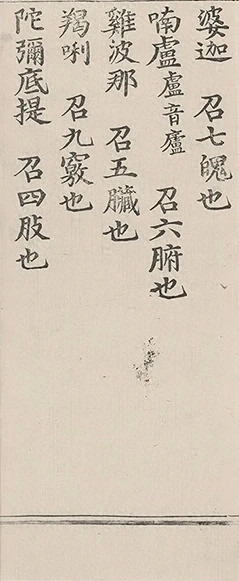 婆迦　召七魄也
喃盧盧音廬　召六腑也
雞波那　召五臟也
羯唎　召九竅也
陀彌底提　召四肢也